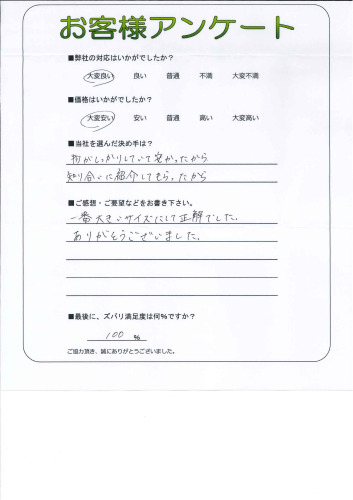 お客様アンケート
■弊社の対応はいかがでしたか?
大変良い 良い 普通 不満 大変不満
■価格はいかがでしたか?
大変安い 安い 普通 高い 大変高い
■当社を選んだ決め手は?
物がしっかりしていて安かったから
知り合いに紹介してもらったから
■ご感想・ご要望などをお書き下さい。
一番大きいサイズにして正解でした。
ありがとうございました。
■最後に、ズバリ満足度は何%ですか?
100 %
ご協力頂き、誠にありがとうございました。